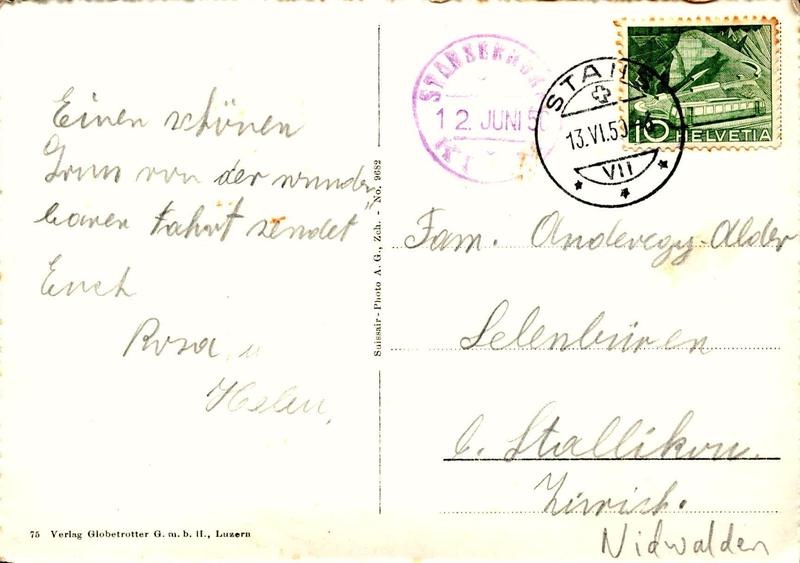 Einen schönen
Gruss von der wunder
baren Fahrt sendet
Euch
Rosa u
Helen,
75 Verlag Globetrotter G. m. b. H., Luzern
Suissair-Photo A. G., Zch. - No. 9682
STANSERHORN
12. JUNI 50
STANS
13.VI.50
VII
10 HELVETIA
Fam. Anderegg-Alder
Selenbüren
b. Stallikon.
Zürich.
Nidwalden